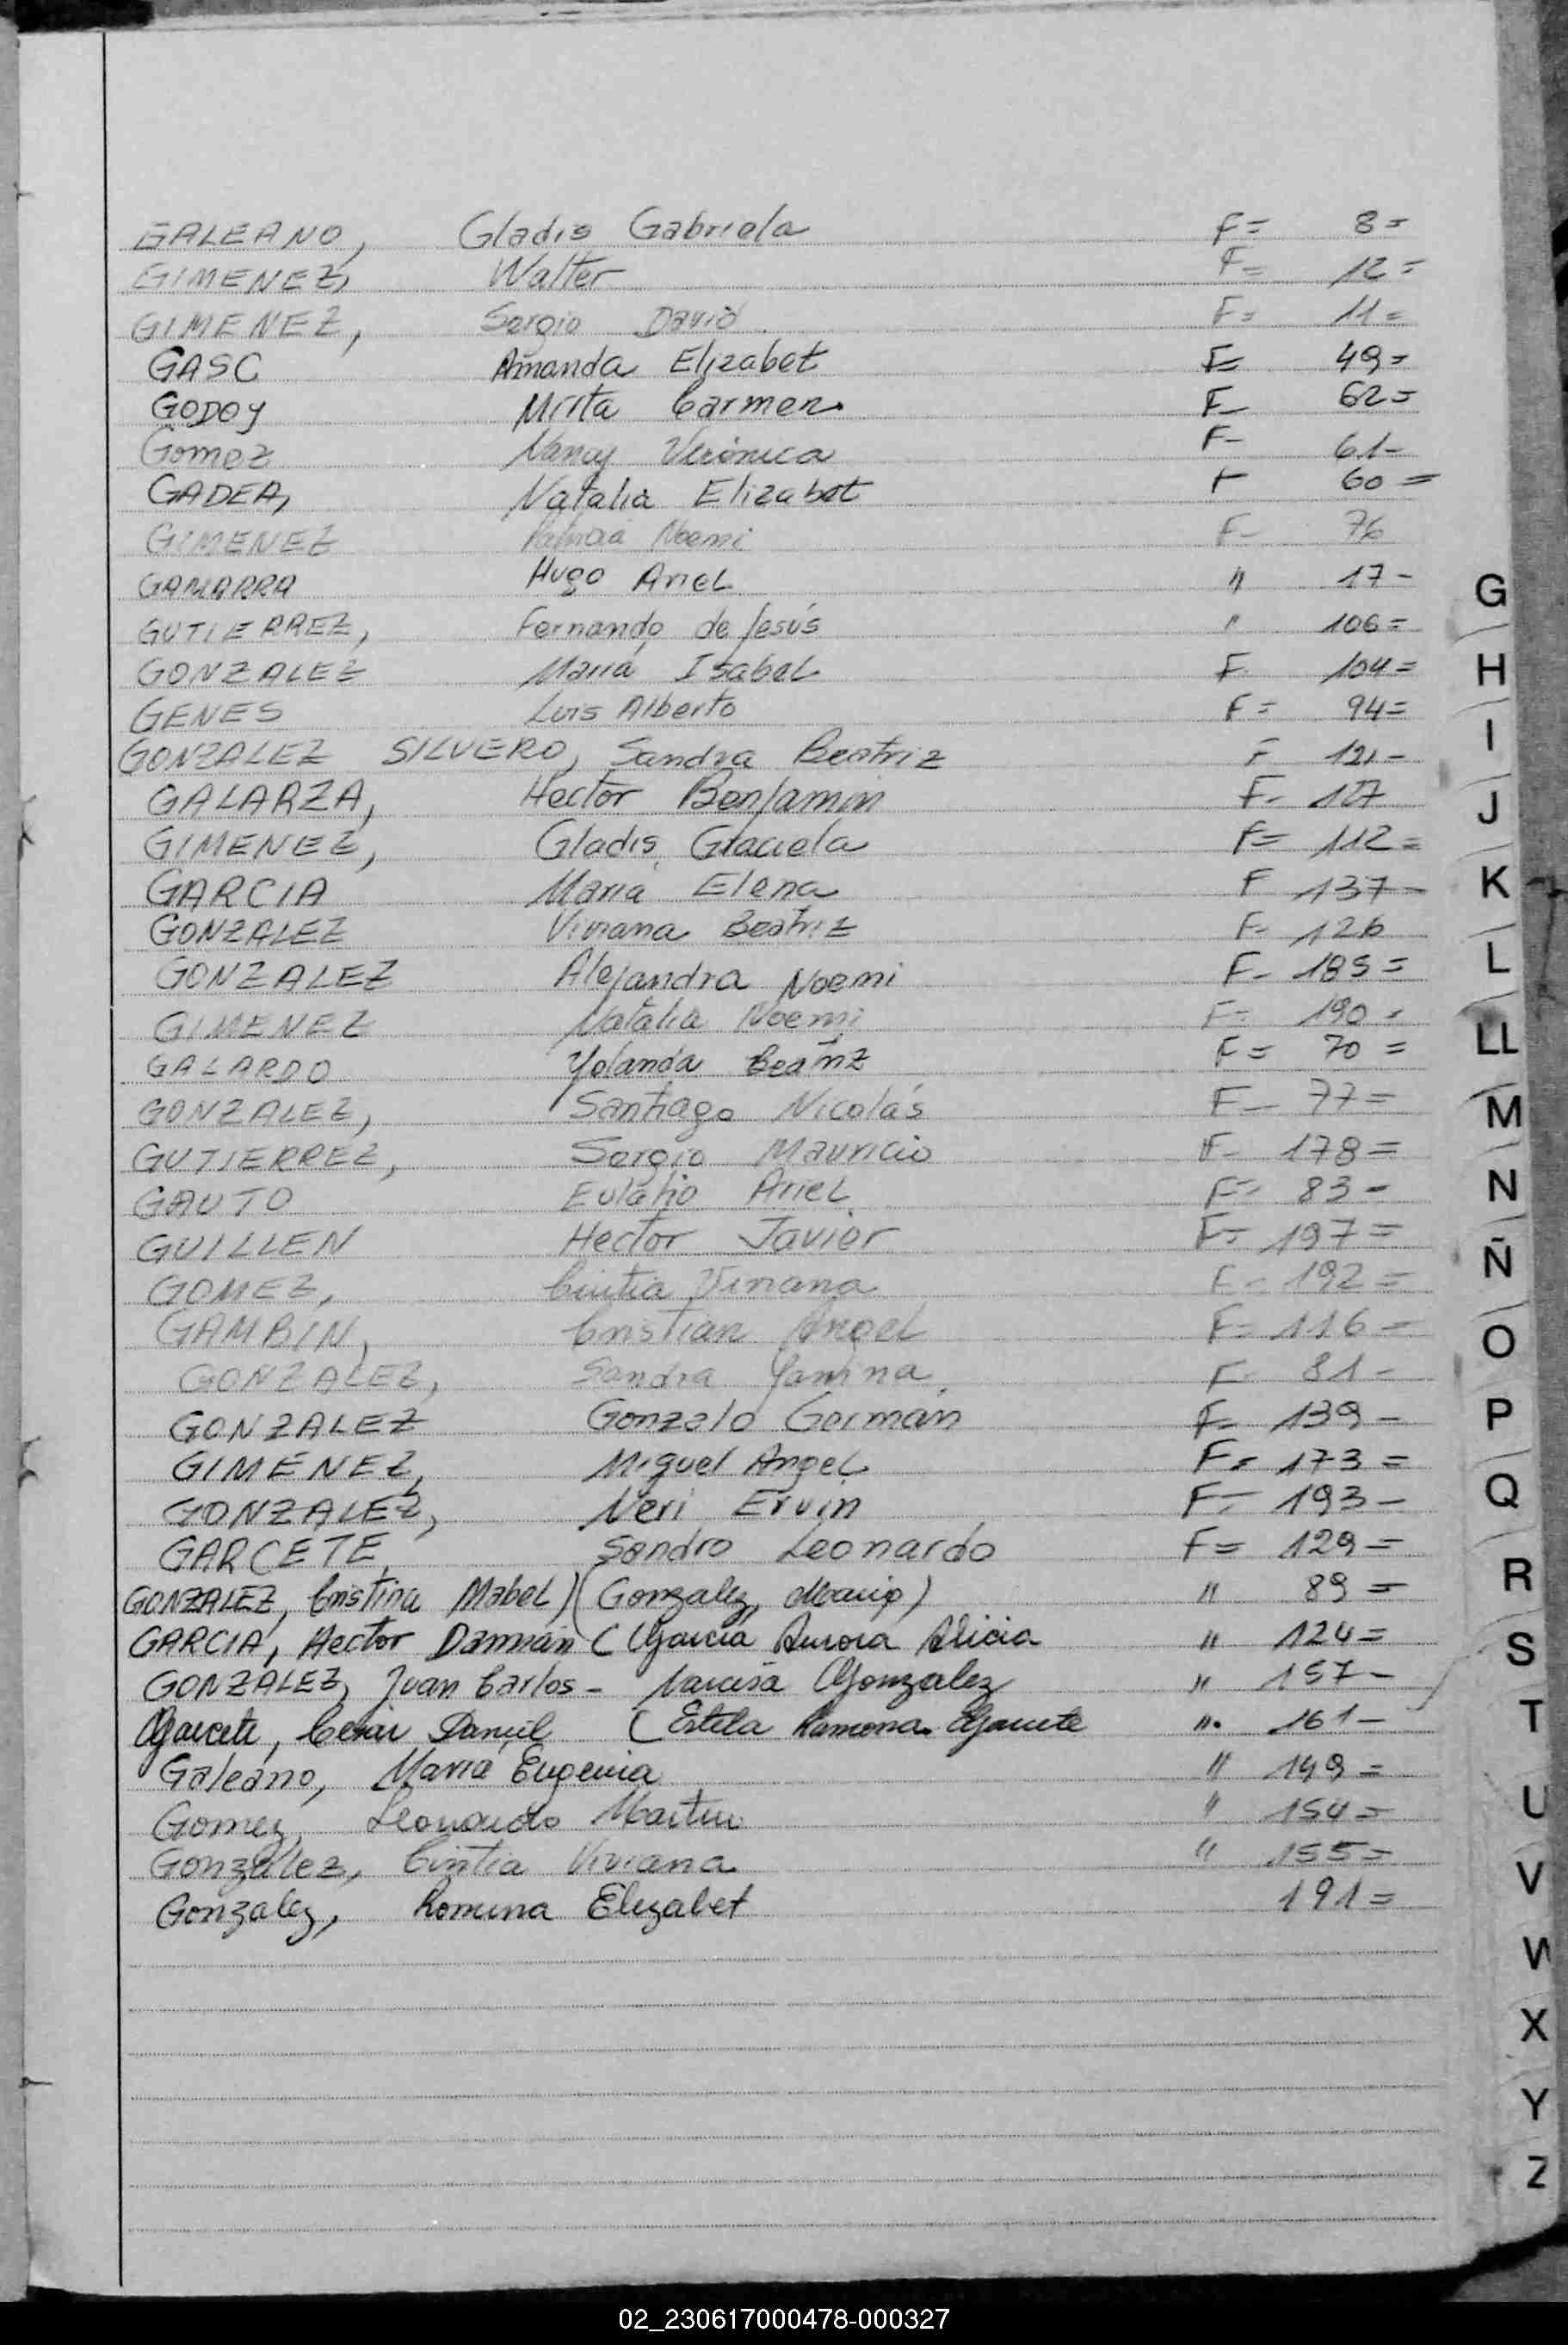 GALEANO, Gladis Gabriela F= 8=
GIMENEZ, Walter F= 12=
GIMENEZ, Sergio David F= 11=
GASC Amanda Elizabet F= 49=
GODOY Mirta Carmen. F- 62=
Gomez Nancy Verónica F- 61-
GADEA, Natalia Elizabet F 60=
GIMENEZ Patricia Noemi F- 76
GAMARRA Hugo Ariel " 17-
GUTIERREZ, Fernando de Jesús " 106=
GONZALEZ Maria Isabel F. 104=
GENES Luis Alberto F= 94=
GONZALEZ SILVERO, Sandra Beatriz F 121-
GALARZA, Hector Benjamin F-
GIMENEZ, Gladis Graciela F= 112=
GARCIA Maria Elena F 137-
GONZALEZ Viviana Beatriz F- 126
GONZALEZ Alejandra Noemi F- 185=
GIMENEZ Natalia Noemi F= 190-
GALARDO Yolanda Beatriz F= 70=
GONZALEZ, Santiago Nicolás F- 77=
GUTIERREZ, Sergio Mauricio F- 178=
GAUTO Eulalio Ariel F= 83-
GUILLEN Hector Javier F= 197=
GOMEZ, Cintia Viviana F- 192=
GAMBIN, Cristian Angel F- 116-
GONZALEZ, Sandra Yamina F- 81-
GONZALEZ Gonzalo Germán F- 139-
GIMÉNEZ, Miguel Angel F= 173=
GONZALEZ, Neri Ervin F= 193-
GARCETE, Sandro Leonardo F= 129=
GONZALEZ, Cristina Mabel) (Gonzalez, Mario) " 89=
GARCIA, Hector Damián ( Garcia Aurora Alicia " 124=
GONZALEZ, Juan Carlos- Narcisa Gonzalez " 157-
Garcete, Cesar Daniel ( Estela Ramona Garcete " 161-
Galeano, Maria Eugenia " 149=
Gomez, Leonardo Martin " 154=
Gonzalez, Cintia Viviana " 155=
Gonzalez, Romina Elizabet 191=
G
H
I
J
K
L
LL
M
N
Ñ
O
P
Q
R
S
T
U
V
W
X
Y
Z
02_230617000478-000327